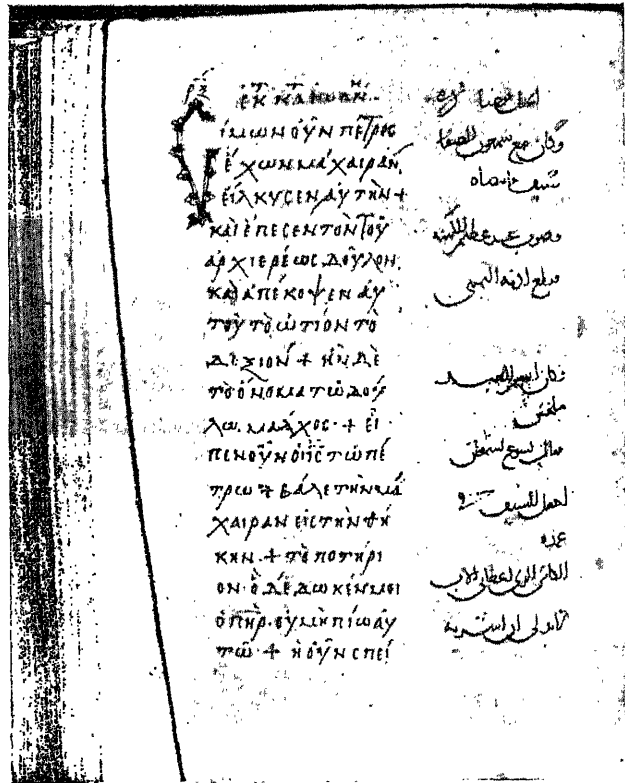 Σίμων οὖν πέτρος
ἔχων μάχαιραν,
εἵλκυσεν αὐτὴν +
καὶ ἔπεσεν τὸν τοῦ
ἀρχιερέως δοῦλον.
καὶ ἀπέκοψεν αὐ
τοῦ τὸ ὠτίον τὸ
δεξιόν + ἦν δὲ
τὸ ὄνομα τῶ δού
λω. μάλχος · + εἶ
πεν οὖν ὁ ις τῶ πέ
τρω + βάλε τὴν μά
χαιραν εἰς τὴν θή
κην. + τὸ ποτήρι
ον · ὃ δέδωκέν μοι
ὁ πηρ. οὐ μὴ πίω αὐ
τῶ + ἡ οὖν σπεῖ
وكان مع شمعون الصفا
سيف
وضرب عبد عظيم الكهنة
وقطع اذنه اليمنى
وكان اسم العبد
فقال يسوع
اجعل السيف في
غمده
الكاس الذي اعطاني الاب
ان اشربه